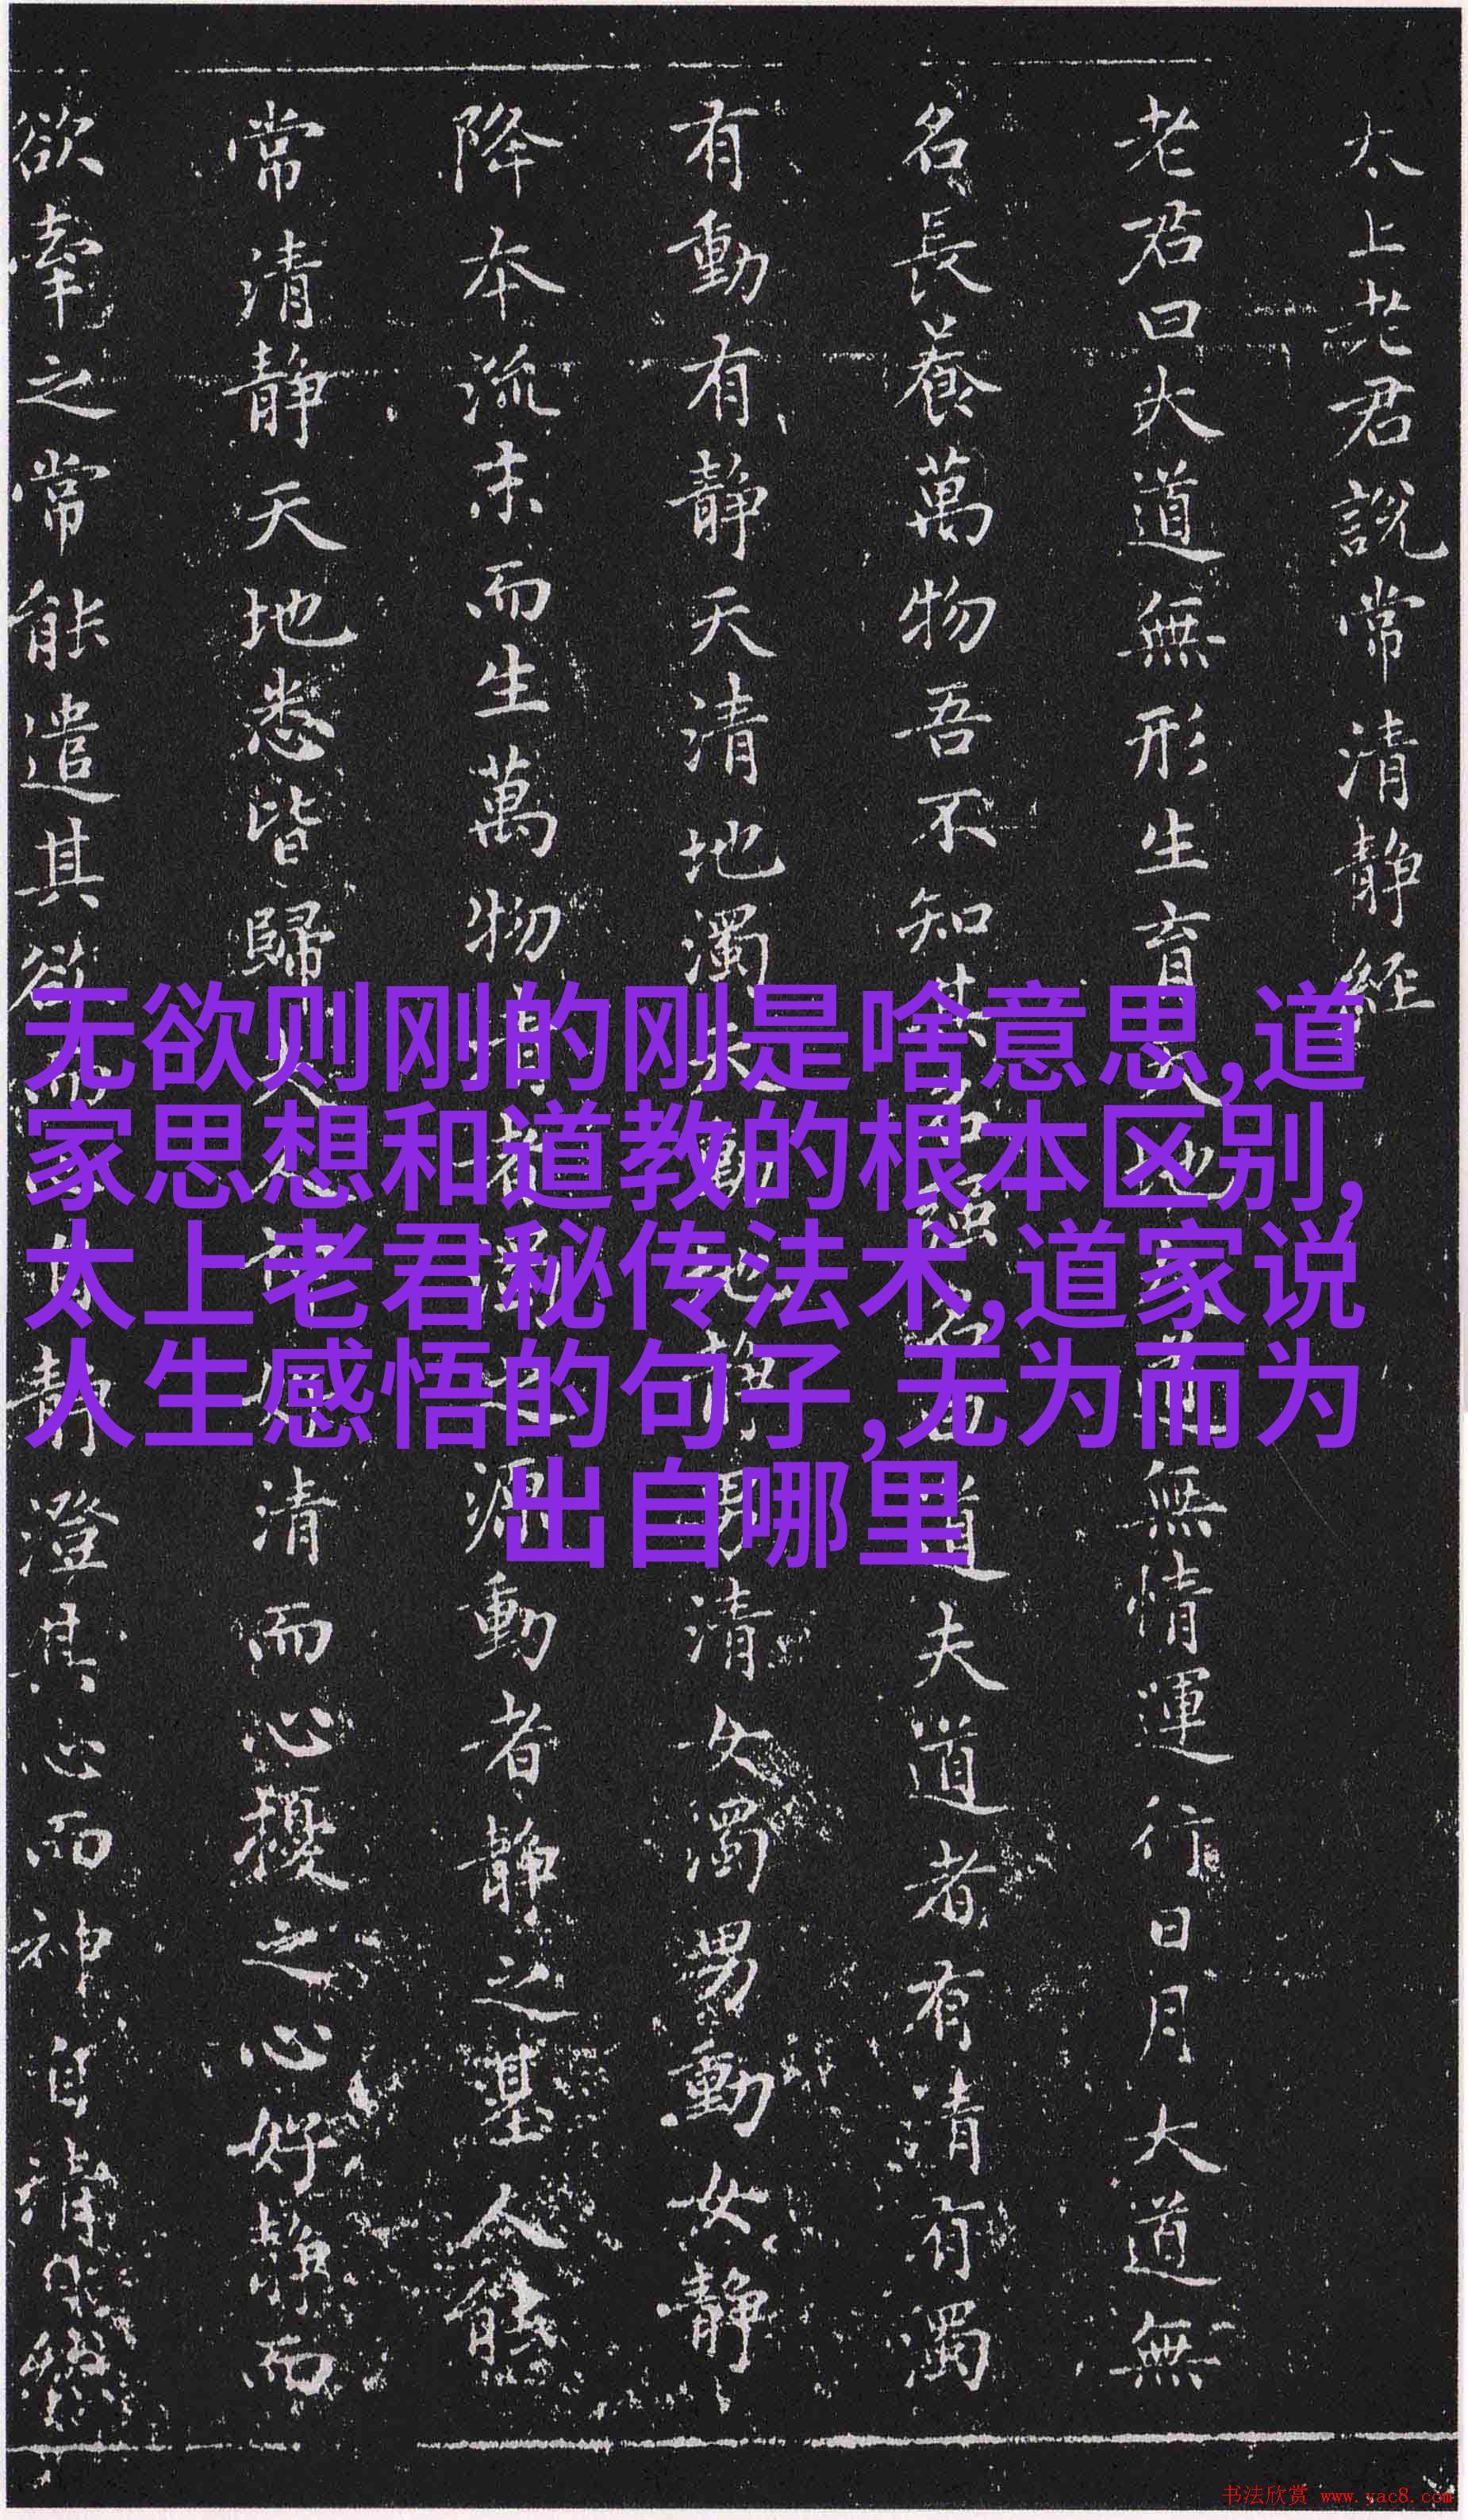 太上老君說常清靜經
老君曰大道無形生育天地大道無情運行日月大道無
名長養萬物吾不知其名強名曰道夫道者有清有濁
有動有靜天清地濁天動地靜男清女濁男動女靜
降本流末而生萬物清者濁之源動者靜之基人能
常清靜天地悉皆歸夫人神好清而心擾之心好靜而
欲牽之常能遣其欲而心自靜澄其心而神自清
无欲则刚的刚是啥意思,道
家思想和道教的根本区别,
太上老君秘传法术,道家说
人生感悟的句子,无为而为
出自哪里
书法欣赏 www.yac8.com